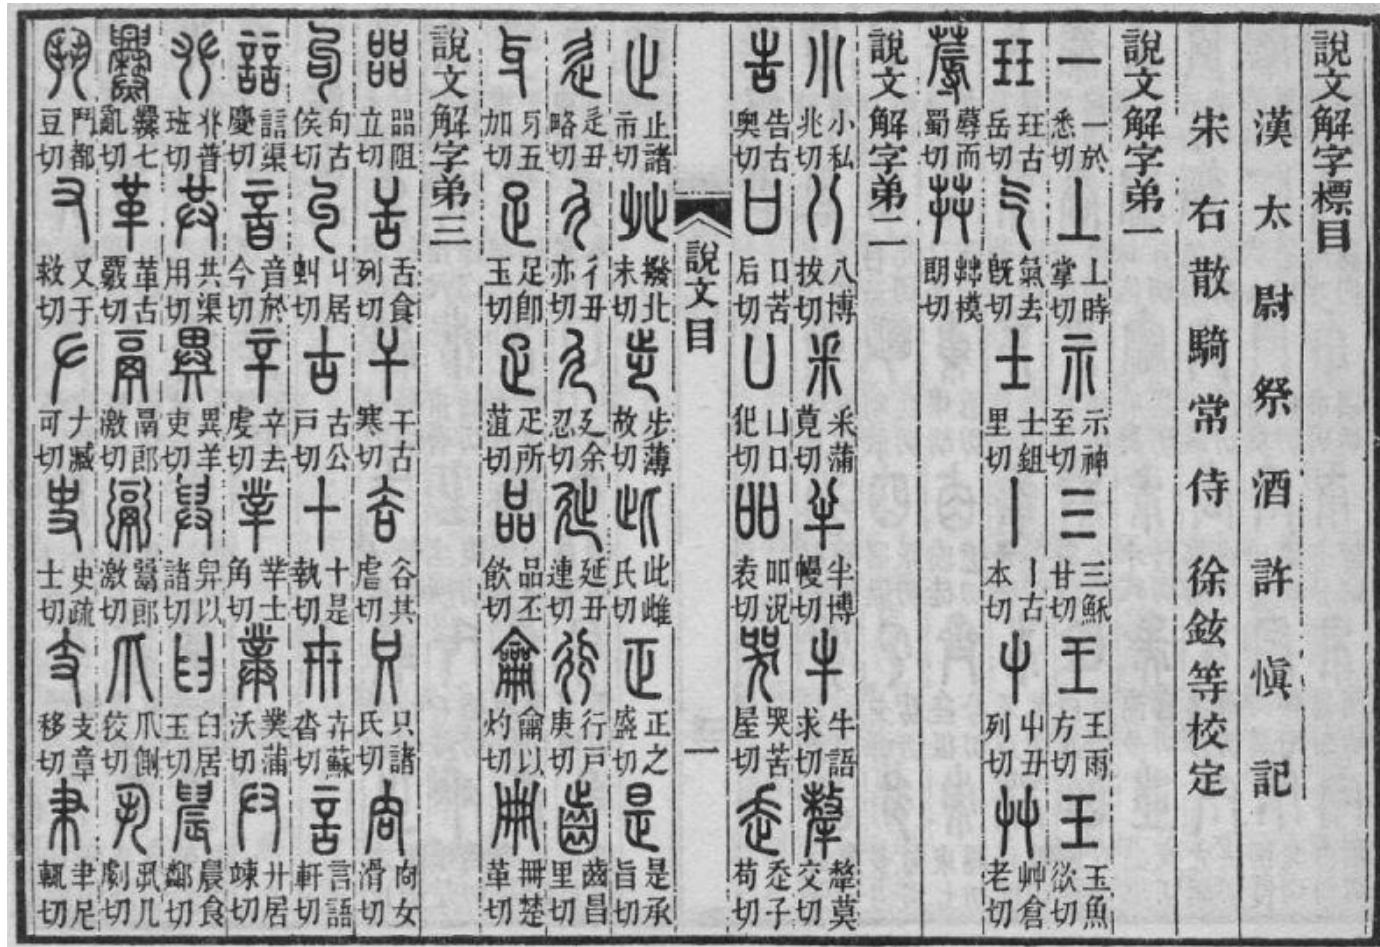 說文解字標目
漢太尉祭酒許愼記
宋右散騎常侍徐鉉等校定
說文解字弟一
一 一於悉切 丄 丄時掌切 示 示神至切 三 三穌甘切 王 王雨方切 玉 玉魚欲切
玨 玨古岳切 气 氣去旣切 士 士鉏里切 丨 丨古本切 屮 屮丑列切 艸 艸倉老切
蓐 蓐而蜀切 茻 茻模朗切
說文解字弟二
小 小私兆切 八 八博拔切 釆 釆蒲莧切 半 半博幔切 牛 牛語求切 犛 犛莫交切
告 告古奧切 口 口苦后切 凵 凵口犯切 吅 吅況袁切 哭 哭苦屋切 走 赱子苟切
說文目 一
止 止諸市切 癶 癹北末切 步 步薄故切 此 此雌氏切 正 正之盛切 是 是承旨切
辵 辵丑略切 彳 彳丑亦切 廴 廴余忍切 㢟 延丑連切 行 行戶庚切 齒 齒昌里切
牙 牙五加切 足 足卽玉切 疋 疋所菹切 品 品丕飮切 龠 龠以灼切 冊 冊楚革切
說文解字弟三
㗊 㗊阻立切 舌 舌食列切 干 干古寒切 谷 谷其虐切 只 只諸氏切 㕯 㕯女滑切
句 句古侯切 丩 丩居虯切 古 古公戶切 十 十是執切 卅 卉蘇沓切 言 言語軒切
誩 誩渠慶切 音 音於今切 䇂 辛去虔切 丵 丵士角切 菐 菐蒲沃切 廾 廾居竦切
𠬜 𠬜普班切 共 共渠用切 異 異羊吏切 舁 舁以諸切 𦥑 臼居玉切 䢅 晨食鄰切
爨 爨七亂切 革 革古覈切 鬲 鬲郎激切 䰜 䰜郎激切 爪 爪側狡切 丮 丮几劇切
鬥 鬥都豆切 又 又于救切 𠂇 𠂇臧可切 史 史疏士切 支 支章移切 𦘒 聿尼輒切